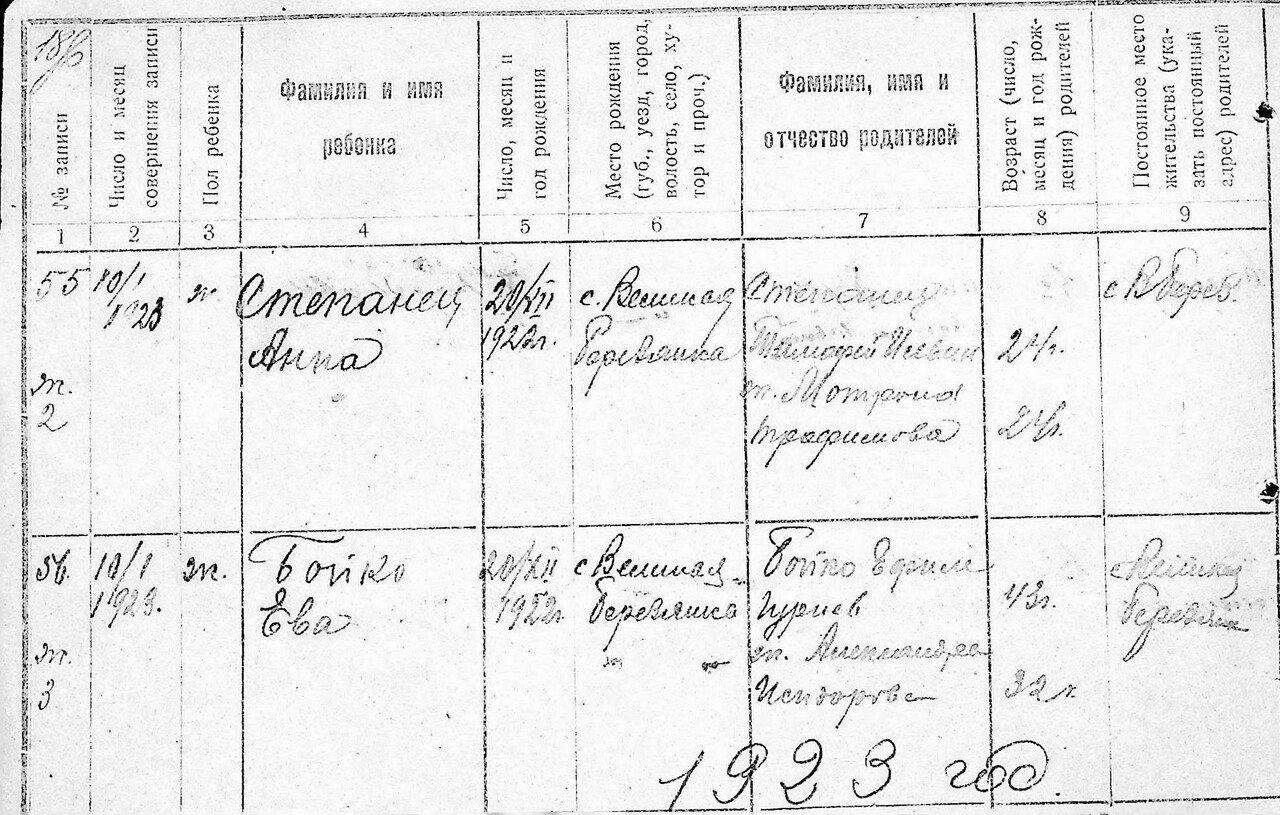 18
№ записи
Число и месяц
совершения записи
Пол ребенка
Фамилия и имя
ребенка
Число, месяц и
год рождения
Место рождения
(губ., уезд, город,
волость, село, ху-
тор и проч.)
Фамилия, имя и
отчество родителей
Возраст (число,
месяц и год рож-
дения) родителей
Постоянное место
жительства (ука-
зать постоянный
адрес) родителей
1 2 3 4 5 6 7 8 9
55
ж.
2
10/I
1923
ж.
Степанец
Анна
20/XII
1922г.
с. Великая
Березянка
Степанец
Тимофей
ж. Мотрона
Трофимова
24г.
24г.
с В Берез.
56.
ж.
3
10/I
1923.
ж.
Бойко
Ева
20/XII
1922г
с Великая
Березянка
" "
Бойко Ефим
Гуриев
ж. Александра
Исидорова
43г.
32 г.
с Великая
Березянка
1923 год.